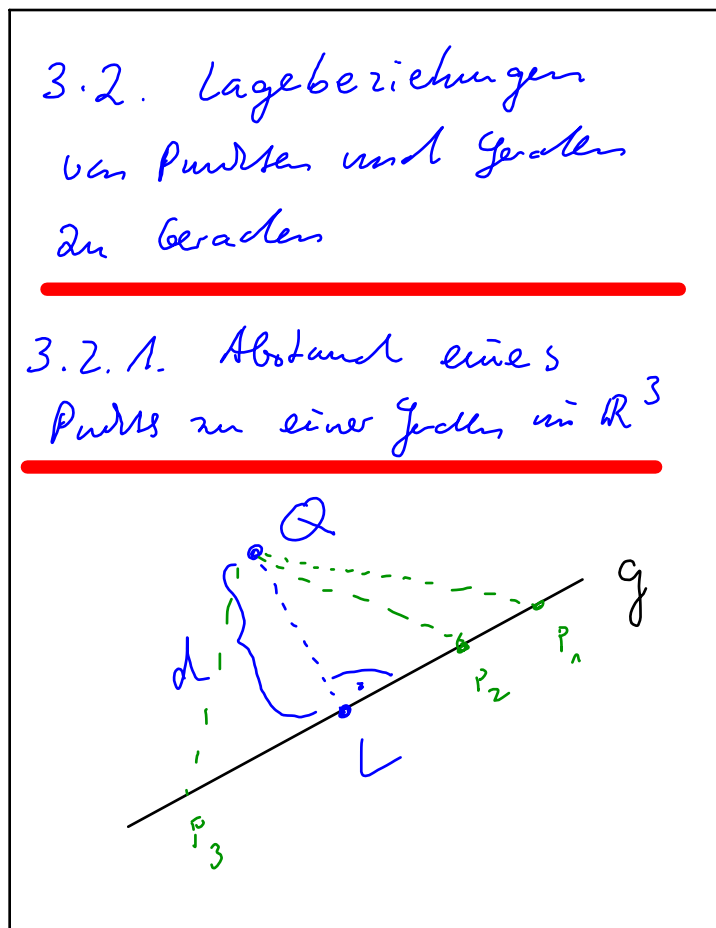 3.2. Lagebeziehungen
von Punkten und Geraden
zu Geraden
3.2.1. Abstand eines
Punkts zu einer Geraden im ℝ³
Q
g
d
P₁
P₂
L
P₃